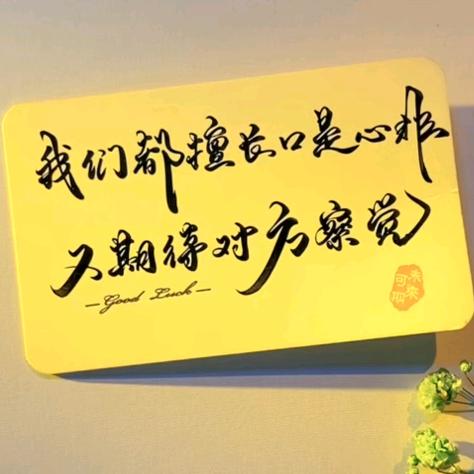 我们都擅长口是心非
又期待对方察觉
Good Luck
未来
可期